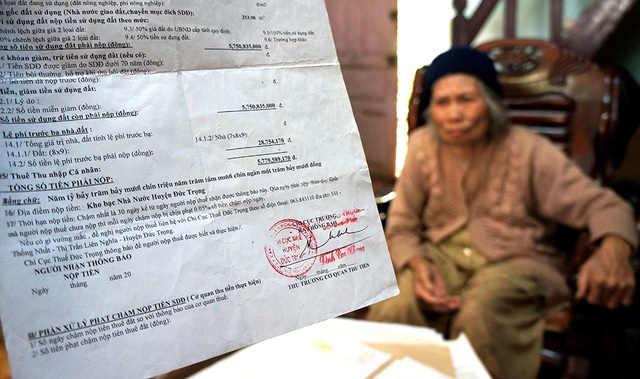 loại đất đang sử dụng (đất nông nghiệp, phi nông nghiệp):
gốc đất sử dụng (Nhà nước giao đất, chuyển mục đích SDĐ):
đ/m2
nộp tiền sử dụng đất theo mức: 253.90 m²
chênh lệch giữa giá 2 loại đất: 9.3/ 50% giá đất do UBND cấp tỉnh quy định: 9.5/100% tiền sử dụng đất.
0% chênh lệch giữa giá 2 loại đất: 9.4/ 50% tiền sử dụng đất. 9.6/ Trường hợp khác:
số tiền sử dụng đất phải nộp (đồng): 5,750,835,000 đ.
khoản giảm, trừ tiền sử dụng đất (nếu có):
/ Tiền SDĐ được giảm do SDĐ dưới 70 năm (đồng):
2/ Tiền bồi thường, hỗ trợ khi thu hồi đất (đồng):
3/ Số tiền đã nộp trước (đồng): - đ.
Miễn, giảm tiền sử dụng đất:
2.1/ Lý do :
2.2/ Số tiền miễn giảm (đồng): 5,750,835,000 đ.
Số tiền sử dụng đất còn phải nộp (đồng): đ.
Lệ phí trước bạ nhà,đất :
14.1/ Tổng giá trị nhà, đất tính lệ phí trước bạ: 14.1.2/ Nhà (7x8x9):
14.1.1/ Đất: (8x9): 28,754,170 đ.
14.2/ Số tiền lệ phí trước bạ phải nộp (đồng):
5/ Thuế Thu nhập Cá nhân: 5,779,589,170 đ.
TỔNG SỐ TIỀN PHẢI NỘP:
Bằng chữ: Năm tỷ bảy trăm bảy mươi chín triệu năm trăm tám mươi chín ngàn một trăm bảy mươi đồng
16/ Địa điểm nộp tiền: Kho bạc Nhà Nước Huyện Đức Trọng
17/ Thời hạn nộp tiền: Chậm nhất là 30 ngày kể từ ngày người nộp thuế nhận được thông báo này. Qúa ngày phải nộp theo quy định
mà người nộp thuế chưa nộp thì mỗi ngày chậm nộp bị chịu phạt 0,05% số tiền chậm nộp/ngày.
Nếu có gì vướng mắc, đề nghị người nộp thuế liên hệ với Chi Cục Thuế Đức Trọng theo số điện thoại: 063.843118 địa chỉ: 331 -
Thống Nhất - Thị Trấn Liên Nghĩa - Huyện Đức Trọng.
Chi Cục Thuế Đức Trọng thông báo để người nộp thuế được biết và thực hiện/.
NGƯỜI NHẬN THÔNG BÁO
NỘP TIỀN
Ngày tháng năm 20
CHI CỤC TRƯỞNG
CHI CỤC THUẾ
HUYỆN
ĐỨC TRỌNG
Ngày tháng năm
THỦ TRƯỞNG CƠ QUAN THU TIỀN
III/ PHẦN XỬ LÝ PHẠT CHẬM NỘP TIỀN SDĐ (Cơ quan thu tiền thực hiện)
1/ Số ngày chậm nộp tiền thuế đất so với thông báo của cơ quan thuế:
2/ Số tiền phạt chậm nộp tiền thuế đất (đồng):